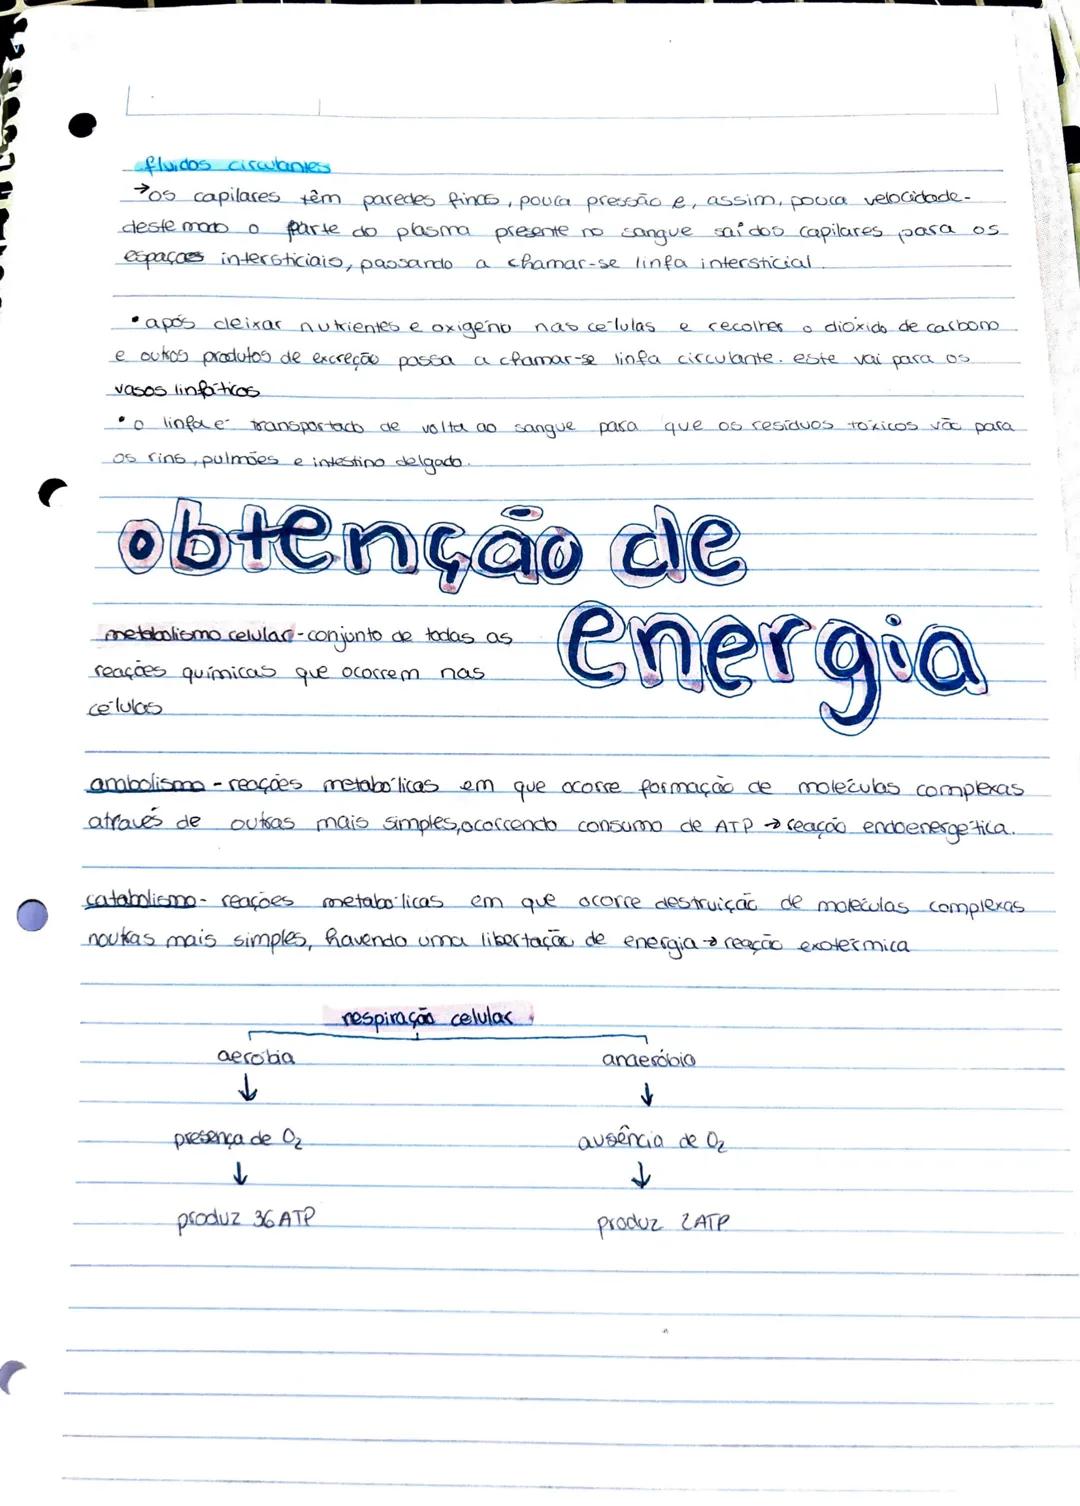 fluidos circulantes
→os capilares têm paredes finas, pouca pressão e, assim, pouca velocidade-
deste modo o parte do plasma presente no sangue sai dos capilares para os
espaços intersticiais, passando a chamar-se linfa intersticial.
•após deixar nutrientes e oxigénio nas células e recolher o dióxido de carbono
e outros produtos de excreção passa a chamar-se linfa circulante. este vai para os
vasos linfáticos
•o linfa é transportado de volta ao sangue para que os resíduos tóxicos vão para
os rins, pulmões e intestino delgado.
obtenção de
energia
metabolismo celular-conjunto de todas as
reações químicas que ocorrem nas
células
anabolismo - reações metabólicas em que ocorre formação de moléculas complexas
através de outras mais simples, ocorrendo consumo de ATP → reação endoenergética.
catabolismo- reações metabólicas em que ocorre destruição de moléculas complexas
noutras mais simples, havendo uma libertação de energia → reação exotérmica
respiração celular
aeróbia anaeróbio
↓ ↓
presença de O₂ ausência de O₂
↓ ↓
produz 36 ATP produz 2 ATP